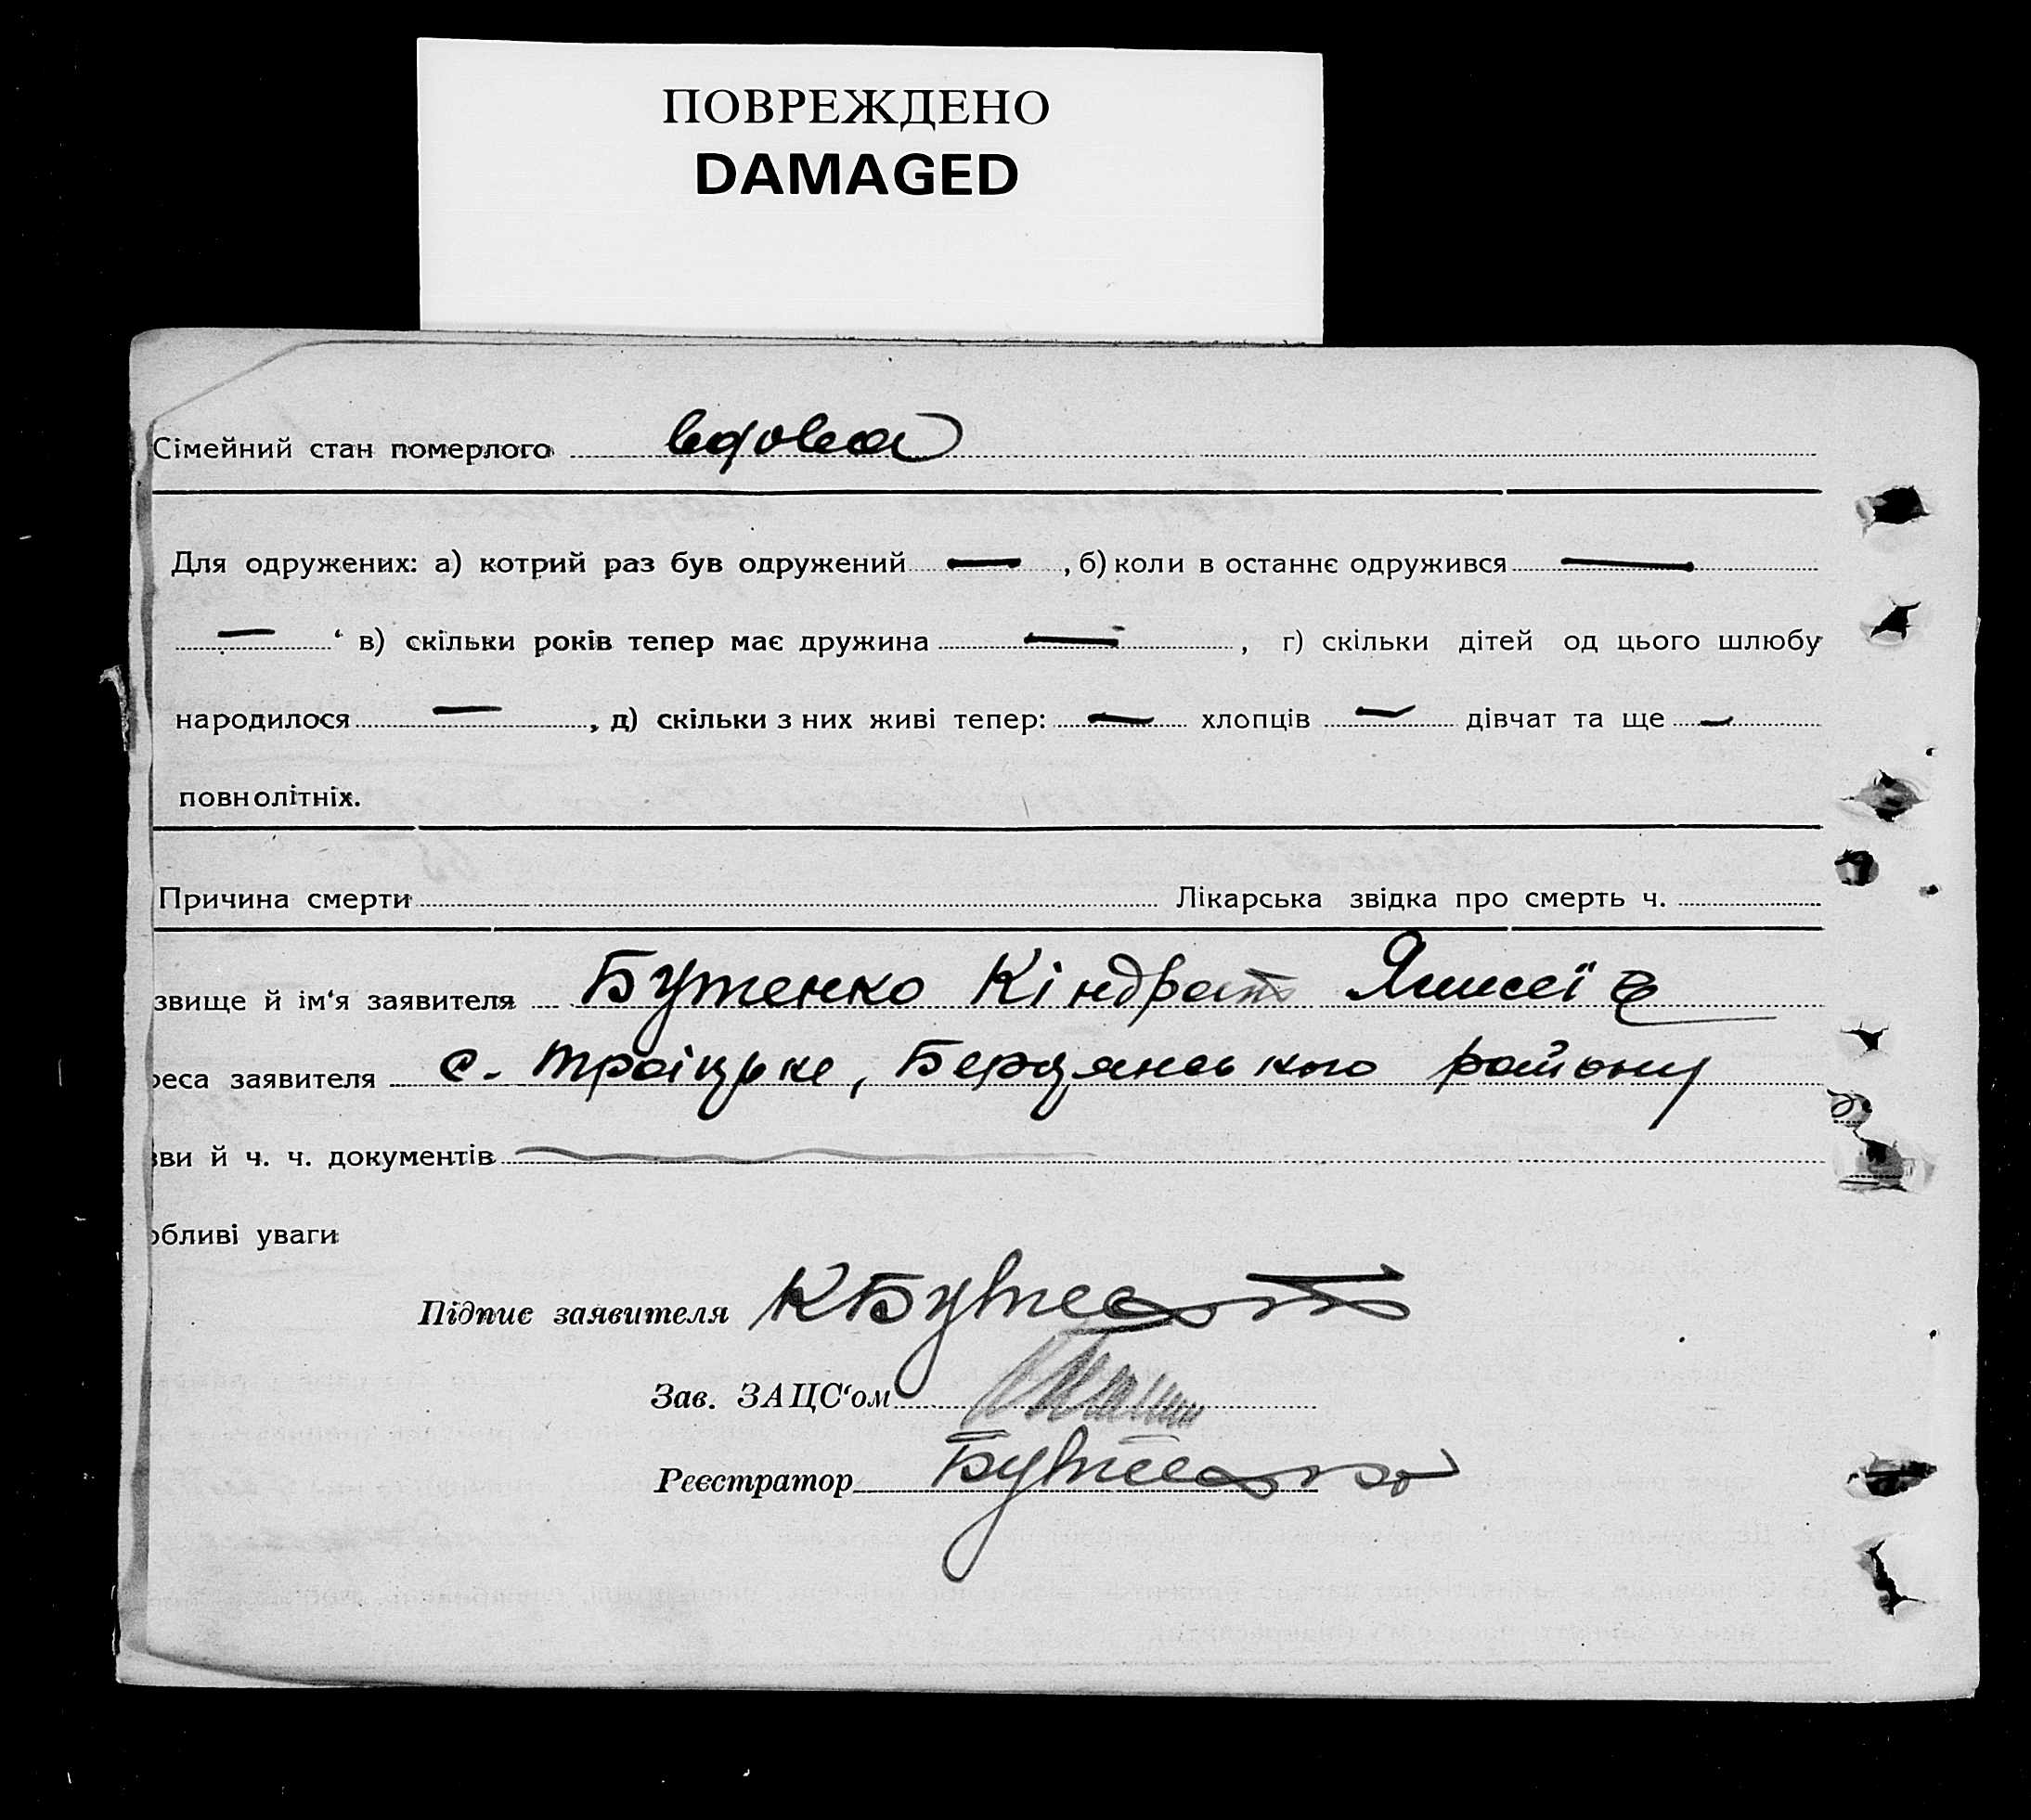 ПОВРЕЖДЕНО
DAMAGED
Сімейний стан померлого вдова
Для одружених: а) котрий раз був одружений — , б) коли в останнє одружився —
— ‘ в) скільки років тепер має дружина — , г) скільки дітей од цього шлюбу
народилося — , д) скільки з них живі тепер: — хлопців — дівчат та ще —
повнолітніх.
Причина смерти Лікарська звідка про смерть ч.
звище й ім‘я заявителя Бутенко Кіндрат
реса заявителя с. Троіцьке, Бердянського району
зви й ч. ч. документів
обливі уваги
Підпис заявителя КБутенко
Зав. ЗАЦС‘ом
Реєстратор Бутенко